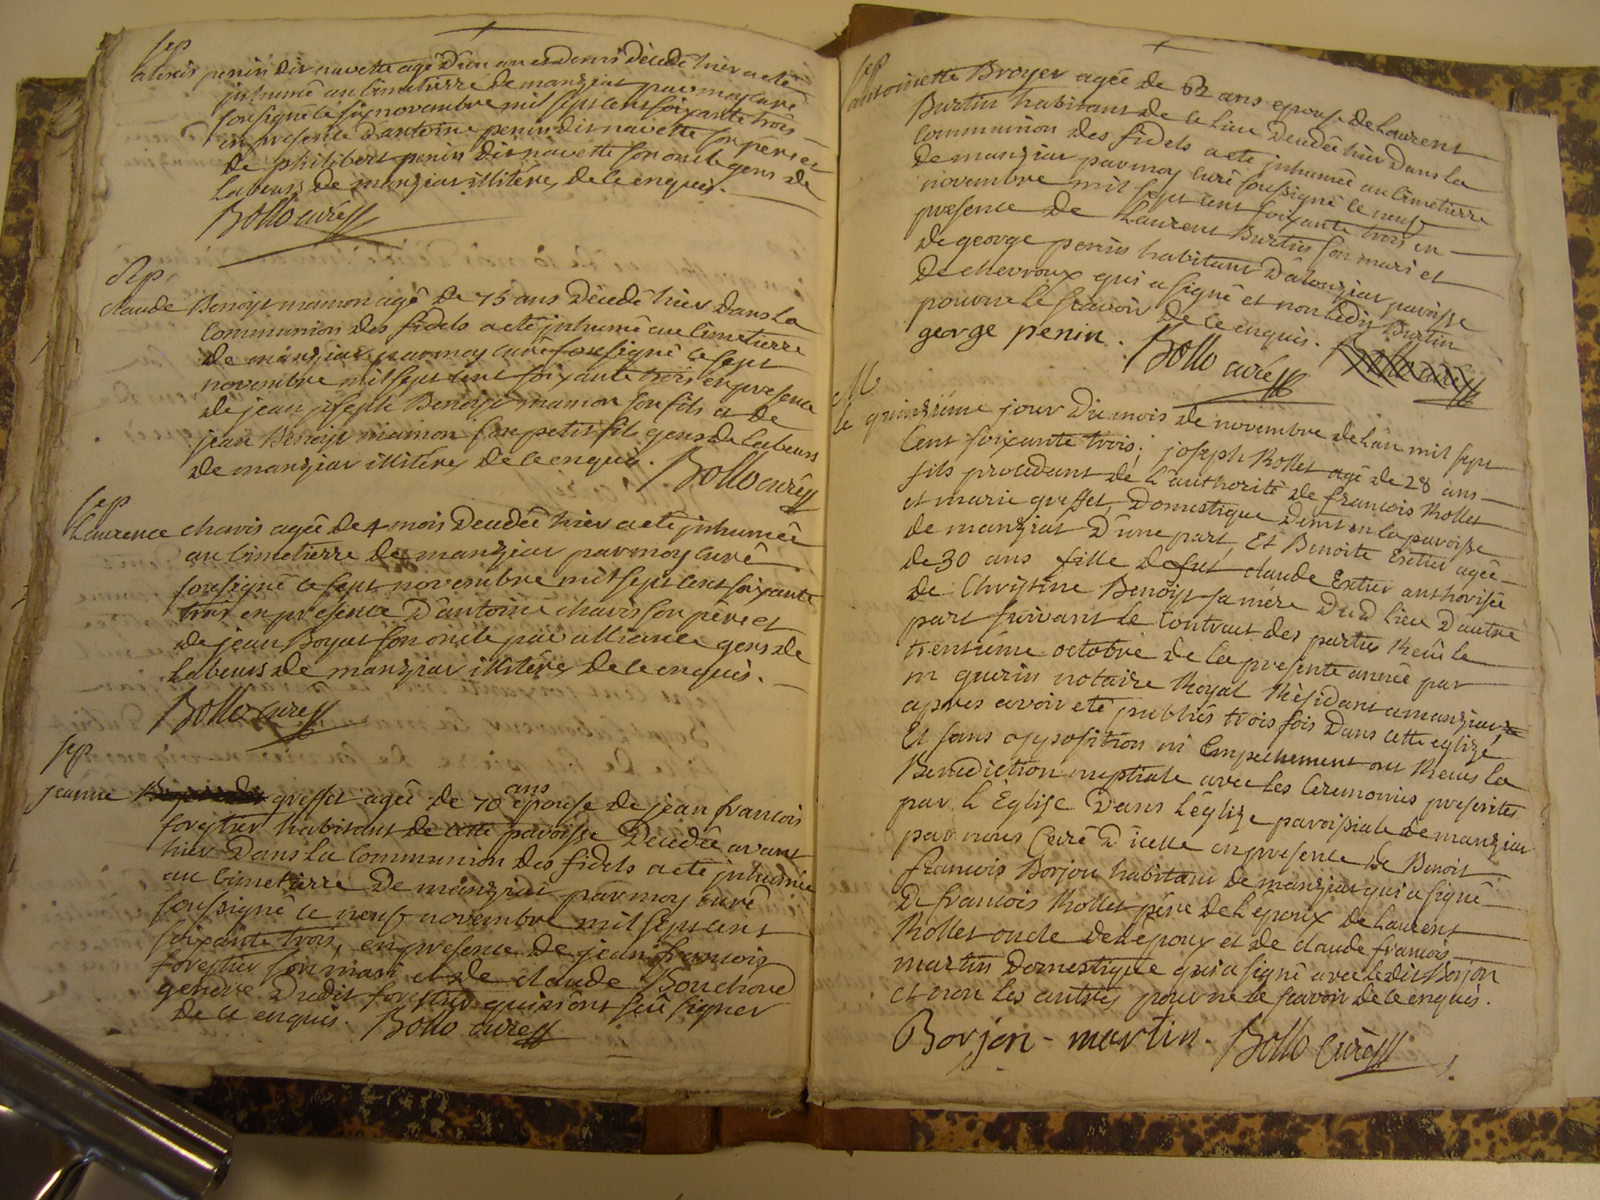 sep
alexis penin dit navette agé d'un an et demi décédé hier a eté
inhumé au cimetierre de manziat par moy curé
sousigné le six novembre mil sept cent soixante trois
en presence d'antoine penin dit navette son pere et
de philibert penin dit navette son oncle gens de
labeurs de manziat illiteres de ce enquis.
Bollo curé
sep
claude Benoist mamon agé de 75 ans décédé hier dans la
communion des fidels a eté inhumé au cimetierre
de manziat par moy curé sousigné le sept
novembre mil sept cent soixante trois en presence
de jean joseph Benoist mamon son fils et de
jean Benoist mamon son petit fils gens de labeurs
de manziat illiteres de ce enquis. Bollo curé
sep
Laurence chavis agée de 4 mois décédée hier a eté inhumée
au cimetierre de manziat par moy curé
sousigné le sept novembre mil sept cent soixante
trois en presence d'antoine chavis son père et
de jean Boyat son oncle par alliance gens de
labeurs de manziat illiteres de ce enquis.
Bollo curé
sep
jeanne greffet agée de 70 ans épouse de jean francois
forestier habitant de cette paroisse décédée avant
hier dans la communion des fidels a eté inhumée
au cimetierre de manziat par moy curé
sousigné le neuf novembre mil sept cent
soixante trois, en presence de jean francois
forestier son mari et de claude Bouchoud
gendre dudit forestier qui n'ont sçû signer
de ce enquis. Bollo curé
sep
antoinette Broyer agée de 62 ans epouse de Laurent
Burtin habitant de ce lieu décédée hier dans la
communion des fidels a eté inhumée au cimetierre
de manziat par moy curé sousigné le neuf
novembre mil sept cent soixante trois en
presence de Laurent Burtin son mari et
de george penin habitant d'âlonziat paroisse
de chevroux qui a signé et non ledit Burtin
pour ne le scavoir de ce enquis.
george penin. Bollo curé
M
le quinzième jour du mois de novembre de l'an mil sept
cent soixante trois; joseph Rollet agé de 28 ans
fils procedant de l'authorité de francois Rollet
et marie greffet, domestique demt en la paroisse
de manziat d'une part, Et Benoite Extier agée
de 30 ans fille de fut claude Extier authorisée
de Christine Benoist sa mère dud lieu d'autre
part suivant le contract des parties Recû le
trentième octobre de la presente année par
m guerin notaire Royal Résidant a manziat
apres avoir eté publiés trois fois dans cette eglize,
Et sans opposition ni Empechement ont Recus la
Benediction nuptiale avec les Ceremonies prescrites
par l'Eglise dans l'églize paroissiale de manziat
par nous Curé d'icelle en presence de Benoit
francois Borjon habitant de manziat qui a signé
de francois Rollet père de l'epoux de Laurent
Rollet oncle de l'epoux et de claude francois
martin domestique qui a signé avec ledit Borjon
et non les autres pour ne le savoir de ce enquis.
Borjon - martin. Bollo Curé